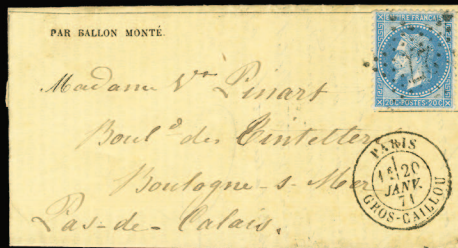 PAR BALLON MONTÉ.
EMPIRE FRANÇAIS
20C-POSTES-20C
Madame Vve Pinart
Boulᵈ des Tintelleries
Boulogne-s-Mer
Pas-de-Calais.
PARIS
20
JANV.
71
GROS-CAILLOU